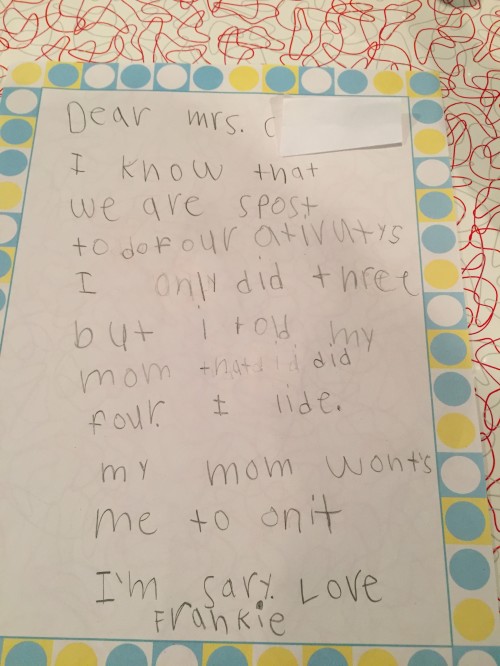 Dear mrs. C
I know that
we are spost
to do four ativutys
I only did three
but i told my
mom that i did
four. I lide.
my mom wont's
me to onit
I'm sary. Love
Frankie